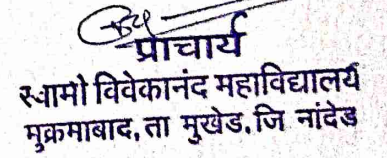 प्राचार्य
स्वामो विवेकानंद महाविद्यालय
मुक्रमाबाद, ता मुखेड, जि नांदेड